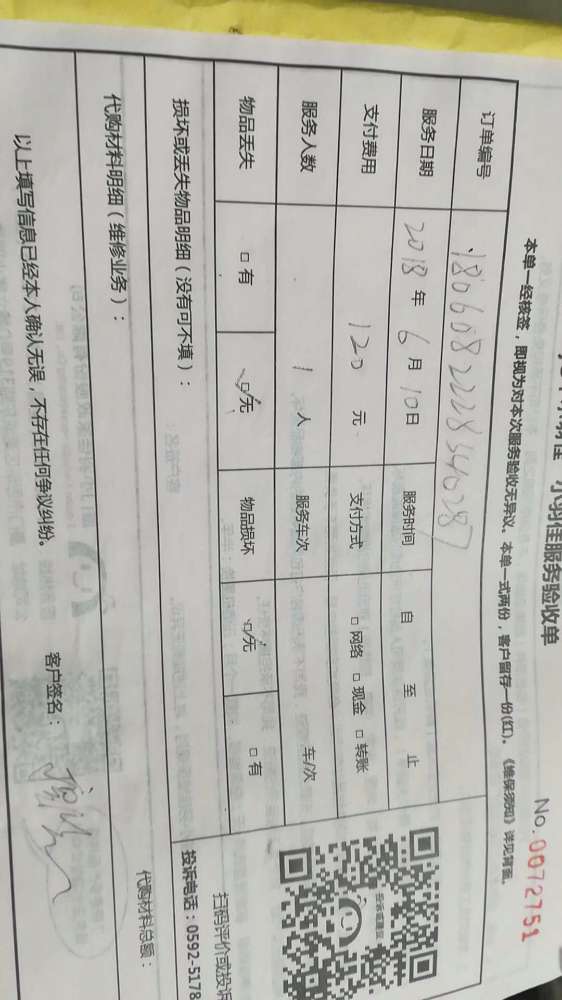 小羽佳服务验收单
No. 0072751
本单一经核签，即视为对本次服务验收无异议。本单一式两份，客户留存一份(红)。《维保须知》详见背面。
订单编号 180608222834028
服务日期 2018年 6月 10日 服务时间 自 至 止
支付费用 120 元 支付方式 □ 网络 □ 现金 □ 转账
服务人数 1 人 服务车次 车/次
物品丢失 □ 有 ☑ 无 物品损坏 ☑ 无 □ 有
损坏或丢失物品明细（没有可不填）：
扫码评价或投诉
投诉电话：0592-5178
代购材料明细（维修业务）：
代购材料总额：
以上填写信息已经本人确认无误，不存在任何争议纠纷。 客户签名：